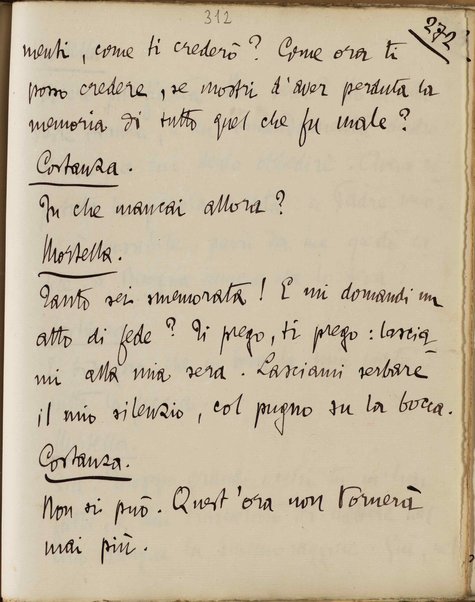 312
272
menti, come ti crederò? Come ora ti
posso credere, se mostri d'aver perduta la
memoria di tutto quel che fu male?
Costanza.
In che mancai allora?
Mortella.
Tanto sei smemorata! E mi domandi un
atto di fede? Ti prego, ti prego: lascia-
mi alla mia sera. Lasciami serbare
il mio silenzio, col pugno su la bocca.
Costanza.
Non si può. Quest'ora non tornerà
mai più.